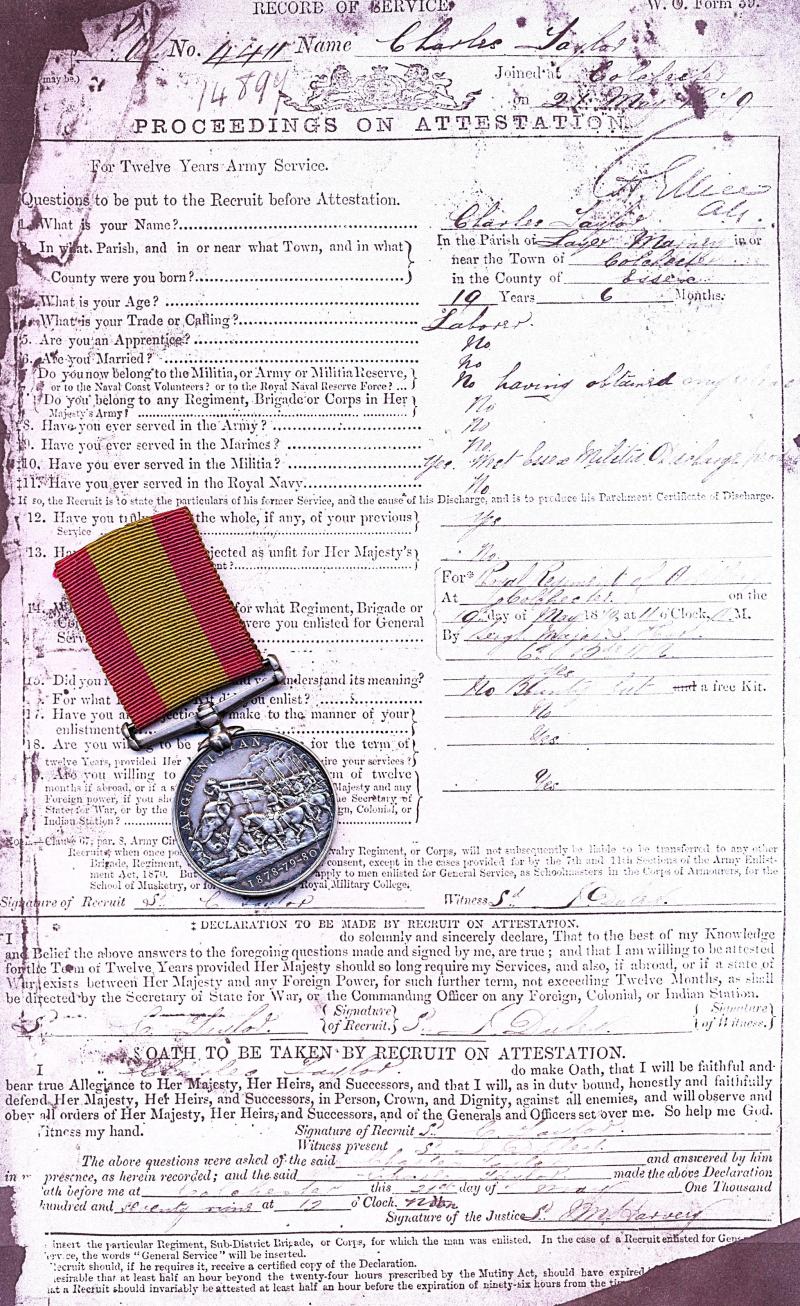 RECORD OF SERVICE.
W. O. Form 39.
No. 4411 Name Charles Taylor
may be.)
14894
Joined at Colchester
on 21 May 1879
PROCEEDINGS ON ATTESTATION.
For Twelve Years Army Service.
Questions to be put to the Recruit before Attestation.
What is your Name? Charles Taylor
In what Parish, and in or near what Town, and in what County were you born? In the Parish of Layer Marney in or
near the Town of Colchester
in the County of Essex
What is your Age? 19 Years 6 Months.
What is your Trade or Calling? Laborer.
5. Are you an Apprentice? No
6. Are you Married? No
Do you now belong to the Militia, or Army or Militia Reserve, or to the Naval Coast Volunteers? or to the Royal Naval Reserve Force? No having obtained
Do you belong to any Regiment, Brigade or Corps in Her Majesty's Army? No
8. Have you ever served in the Army? No
9. Have you ever served in the Marines? No
10. Have you ever served in the Militia? Yes. West Essex Militia Discharge
‡11. Have you ever served in the Royal Navy No
‡ If so, the Recruit is to state the particulars of his former Service, and the cause of his Discharge, and is to produce his Parchment Certificate of Discharge.
12. Have you the whole, if any, of your previous Service Yes
13. jected as unfit for Her Majesty's No
14. for what Regiment, Brigade or
were you enlisted for General
For* Royal Regiment of
At Colchester on the
day of May 18 at 11 o'Clock, M.
By Major
15. Did you understand its meaning? Yes
For what Kit did you enlist? No Bounty but and a free Kit.
17. Have you make to the manner of your enlistment No
18. Are you to be for the term of
twelve Years, provided Her ire your services? Yes
Are you willing m of twelve
months if abroad, or if a Majesty and any
Foreign power, if you ue Secretary of
State for War, or by the gn, Colonial, or
Indian Station? Yes
AFGHANISTAN
1878-79-80
par. 8, Army valry Regiment, or Corps, will not subsequently be liable to be transferred to any other
Brigade, Regiment, consent, except in the cases provided for by the 7th and 11th Sections of the Army Enlist-
ment Act, 1870. But apply to men enlisted for General Service, as Schoolmasters in the Corps of Armourers, for the
School of Musketry, or for Royal Military College.
Signature of Recruit C. Taylor Witness
‡ DECLARATION TO BE MADE BY RECRUIT ON ATTESTATION.
I do solemnly and sincerely declare, That to the best of my Knowledge
and Belief the above answers to the foregoing questions made and signed by me, are true; and that I am willing to be attested
for the Term of Twelve Years provided Her Majesty should so long require my Services, and also, if abroad, or if a state of
War exists between Her Majesty and any Foreign Power, for such further term, not exceeding Twelve Months, as shall
be directed by the Secretary of State for War, or the Commanding Officer on any Foreign, Colonial, or Indian Station.
C. Taylor {Signature of Recruit. {Signature of Witness.
§ OATH TO BE TAKEN BY RECRUIT ON ATTESTATION.
I Charles Taylor do make Oath, that I will be faithful and
bear true Allegiance to Her Majesty, Her Heirs, and Successors, and that I will, as in duty bound, honestly and faithfully
defend Her Majesty, Her Heirs, and Successors, in Person, Crown, and Dignity, against all enemies, and will observe and
obey all orders of Her Majesty, Her Heirs, and Successors, and of the Generals and Officers set over me. So help me God.
Witness my hand. Signature of Recruit C. Taylor
Witness present
The above questions were asked of the said Charles Taylor and answered by him
in presence, as herein recorded; and the said Charles Taylor made the above Declaration
ath before me at Colchester this 21st day of May One Thousand
hundred and seventy nine at 12 o'Clock. Noon
Signature of the Justice
insert the particular Regiment, Sub-District Brigade, or Corps, for which the man was enlisted. In the case of a Recruit enlisted for
the words "General Service" will be inserted.
Recruit should, if he requires it, receive a certified copy of the Declaration.
esirable that at least half an hour beyond the twenty-four hours prescribed by the Mutiny Act, should have expired
at a Recruit should invariably be attested at least half an hour before the expiration of ninety-six hours from the